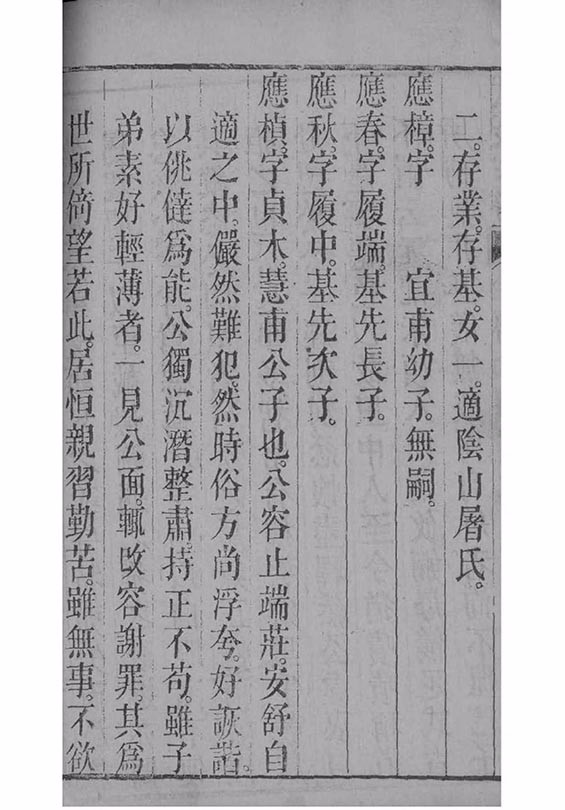 二。存業。存基。女一。適陰山屠氏。
應樟。字　　宜甫幼子。無嗣。
應春。字履端。基先長子。
應秋。字履中。基先次子。
應楨。字貞木。慧甫公子也。公容止端莊。安舒自
適之中。儼然難犯。然時俗方尚浮夸。好詼諧。
以佻㒓爲能。公獨沉潛整肅。持正不苟。雖子
弟素好輕薄者。一見公面。輒改容謝罪。其爲
世所倚望若此。居恒親習勤苦。雖無事。不欲